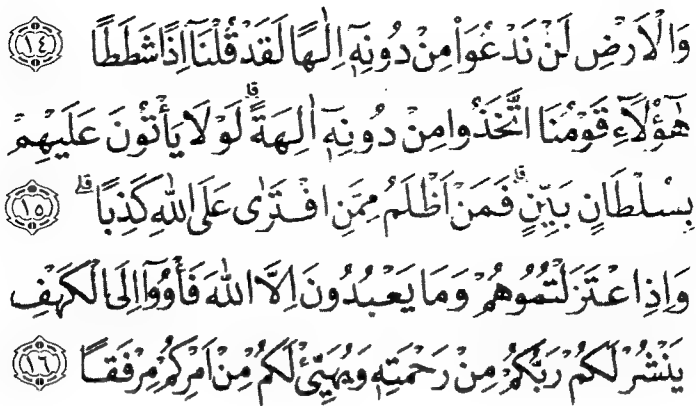 وَالْاَرْضِ لَنْ نَدْعُوَا۬ مِنْ دُونِه۪ٓ اِلٰهًا لَقَدْ قُلْنَٓا اِذًا شَطَطًا ﴿١٤﴾
هٰٓؤُ۬لَٓاءِ قَوْمُنَا اتَّخَذُوا مِنْ دُونِه۪ٓ اٰلِهَةًۜ لَوْلَا يَأْتُونَ عَلَيْهِمْ
بِسُلْطَانٍ بَيِّنٍۜ فَمَنْ اَظْلَمُ مِمَّنِ افْتَرٰى عَلَى اللّٰهِ كَذِبًاۜ ﴿١٥﴾
وَاِذِ اعْتَزَلْتُمُوهُمْ وَمَا يَعْبُدُونَ اِلَّا اللّٰهَ فَأْوُٓ۫ا اِلَى الْكَهْفِ
يَنْشُرْ لَكُمْ رَبُّكُمْ مِنْ رَحْمَتِه۪ وَيُهَيِّئْ لَكُمْ مِنْ اَمْرِكُمْ مِرْفَقًا ﴿١٦﴾